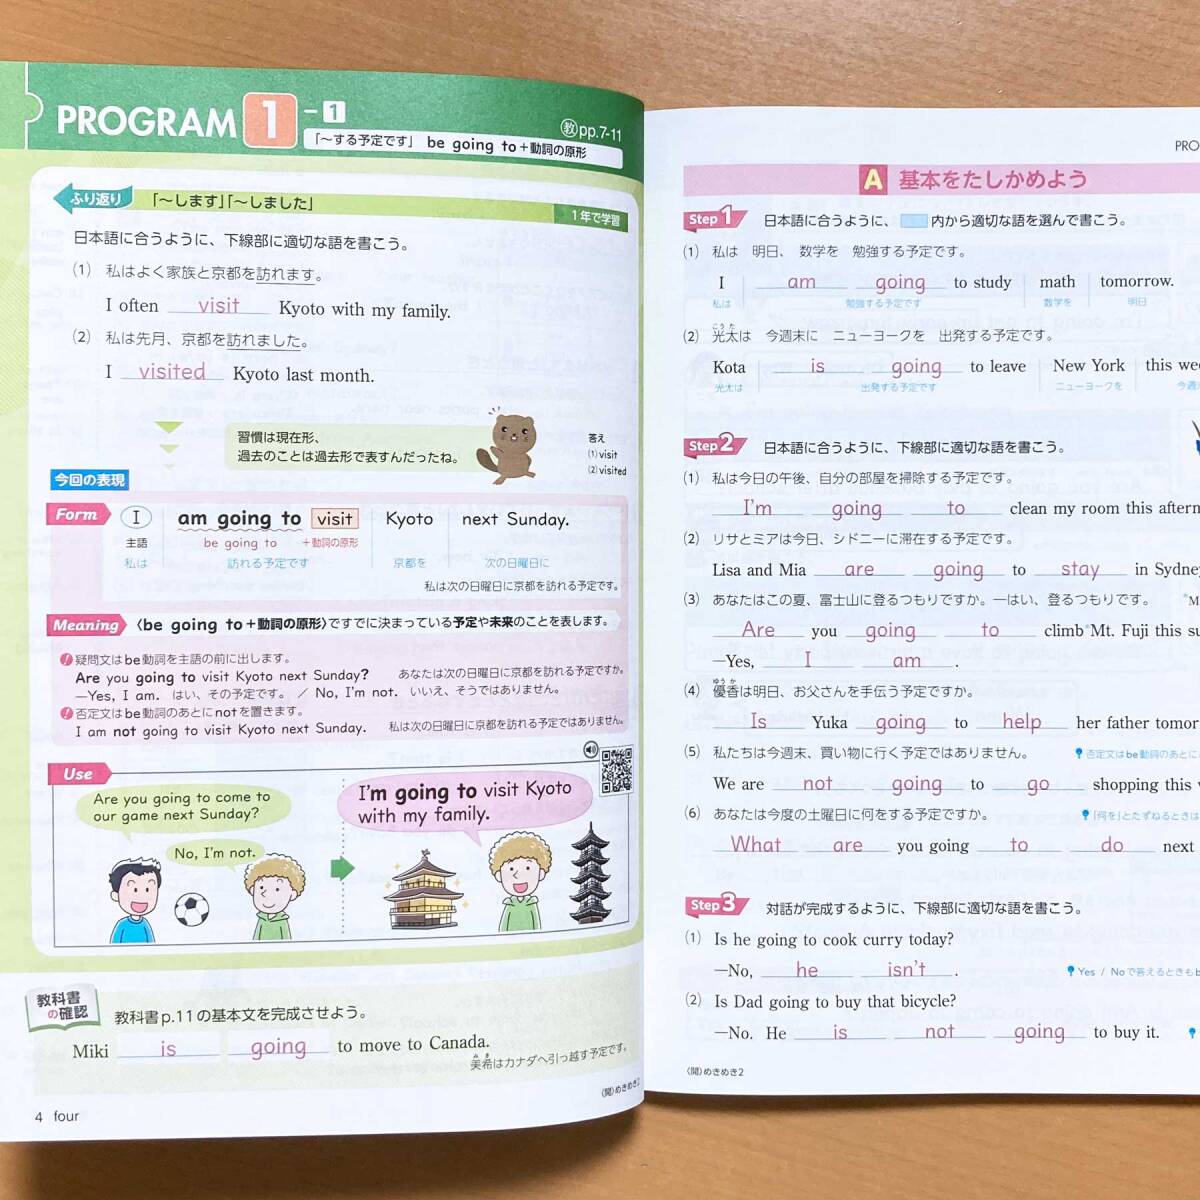 PROGRAM 1 －1
「～する予定です」 be going to＋動詞の原形
教pp.7-11
ふり返り 「～します」「～しました」
1年で学習
日本語に合うように、下線部に適切な語を書こう。
(1) 私はよく家族と京都を訪れます。
I often visit Kyoto with my family.
(2) 私は先月、京都を訪れました。
I visited Kyoto last month.
習慣は現在形、
過去のことは過去形で表すんだったね。
答え
(1)visit
(2)visited
今回の表現
Form I am going to visit Kyoto next Sunday.
主語 be going to ＋動詞の原形
私は 訪れる予定です 京都を 次の日曜日に
私は次の日曜日に京都を訪れる予定です。
Meaning 〈be going to＋動詞の原形〉ですでに決まっている予定や未来のことを表します。
! 疑問文はbe動詞を主語の前に出します。
Are you going to visit Kyoto next Sunday? あなたは次の日曜日に京都を訪れる予定ですか。
—Yes, I am. はい、その予定です。 ／ No, I'm not. いいえ、そうではありません。
! 否定文はbe動詞のあとにnotを置きます。
I am not going to visit Kyoto next Sunday. 私は次の日曜日に京都を訪れる予定ではありません。
Use
Are you going to come to
our game next Sunday?
No, I'm not.
I'm going to visit Kyoto
with my family.
教科書
の確認
教科書p.11の基本文を完成させよう。
Miki is going to move to Canada.
美希はカナダへ引っ越す予定です。
みき
〈開〉めきめき2
4 four
PRO
A 基本をたしかめよう
Step 1 日本語に合うように、 内から適切な語を選んで書こう。
(1) 私は 明日、 数学を 勉強する予定です。
I am going to study math tomorrow.
私は 勉強する予定です 数学を 明日
こうた
(2) 光太は 今週末に ニューヨークを 出発する予定です。
Kota is going to leave New York this wee
光太は 出発する予定です ニューヨークを 今週
Step 2 日本語に合うように、下線部に適切な語を書こう。
(1) 私は今日の午後、自分の部屋を掃除する予定です。
I'm going to clean my room this aftern
(2) リサとミアは今日、シドニーに滞在する予定です。
Lisa and Mia are going to stay in Sydney
(3) あなたはこの夏、富士山に登るつもりですか。—はい、登るつもりです。 *M
Are you going to climb*Mt. Fuji this su
—Yes, I am .
ゆうか
(4) 優香は明日、お父さんを手伝う予定ですか。
Is Yuka going to help her father tomor
(5) 私たちは今週末、買い物に行く予定ではありません。 否定文はbe動詞のあとに
We are not going to go shopping this
(6) あなたは今度の土曜日に何をする予定ですか。 「何を」とたずねるときは
What are you going to do next
Step 3 対話が完成するように、下線部に適切な語を書こう。
(1) Is he going to cook curry today?
—No, he isn't . Yes / Noで答えるときもb
(2) Is Dad going to buy that bicycle?
—No. He is not going to buy it.
〈開〉めきめき2